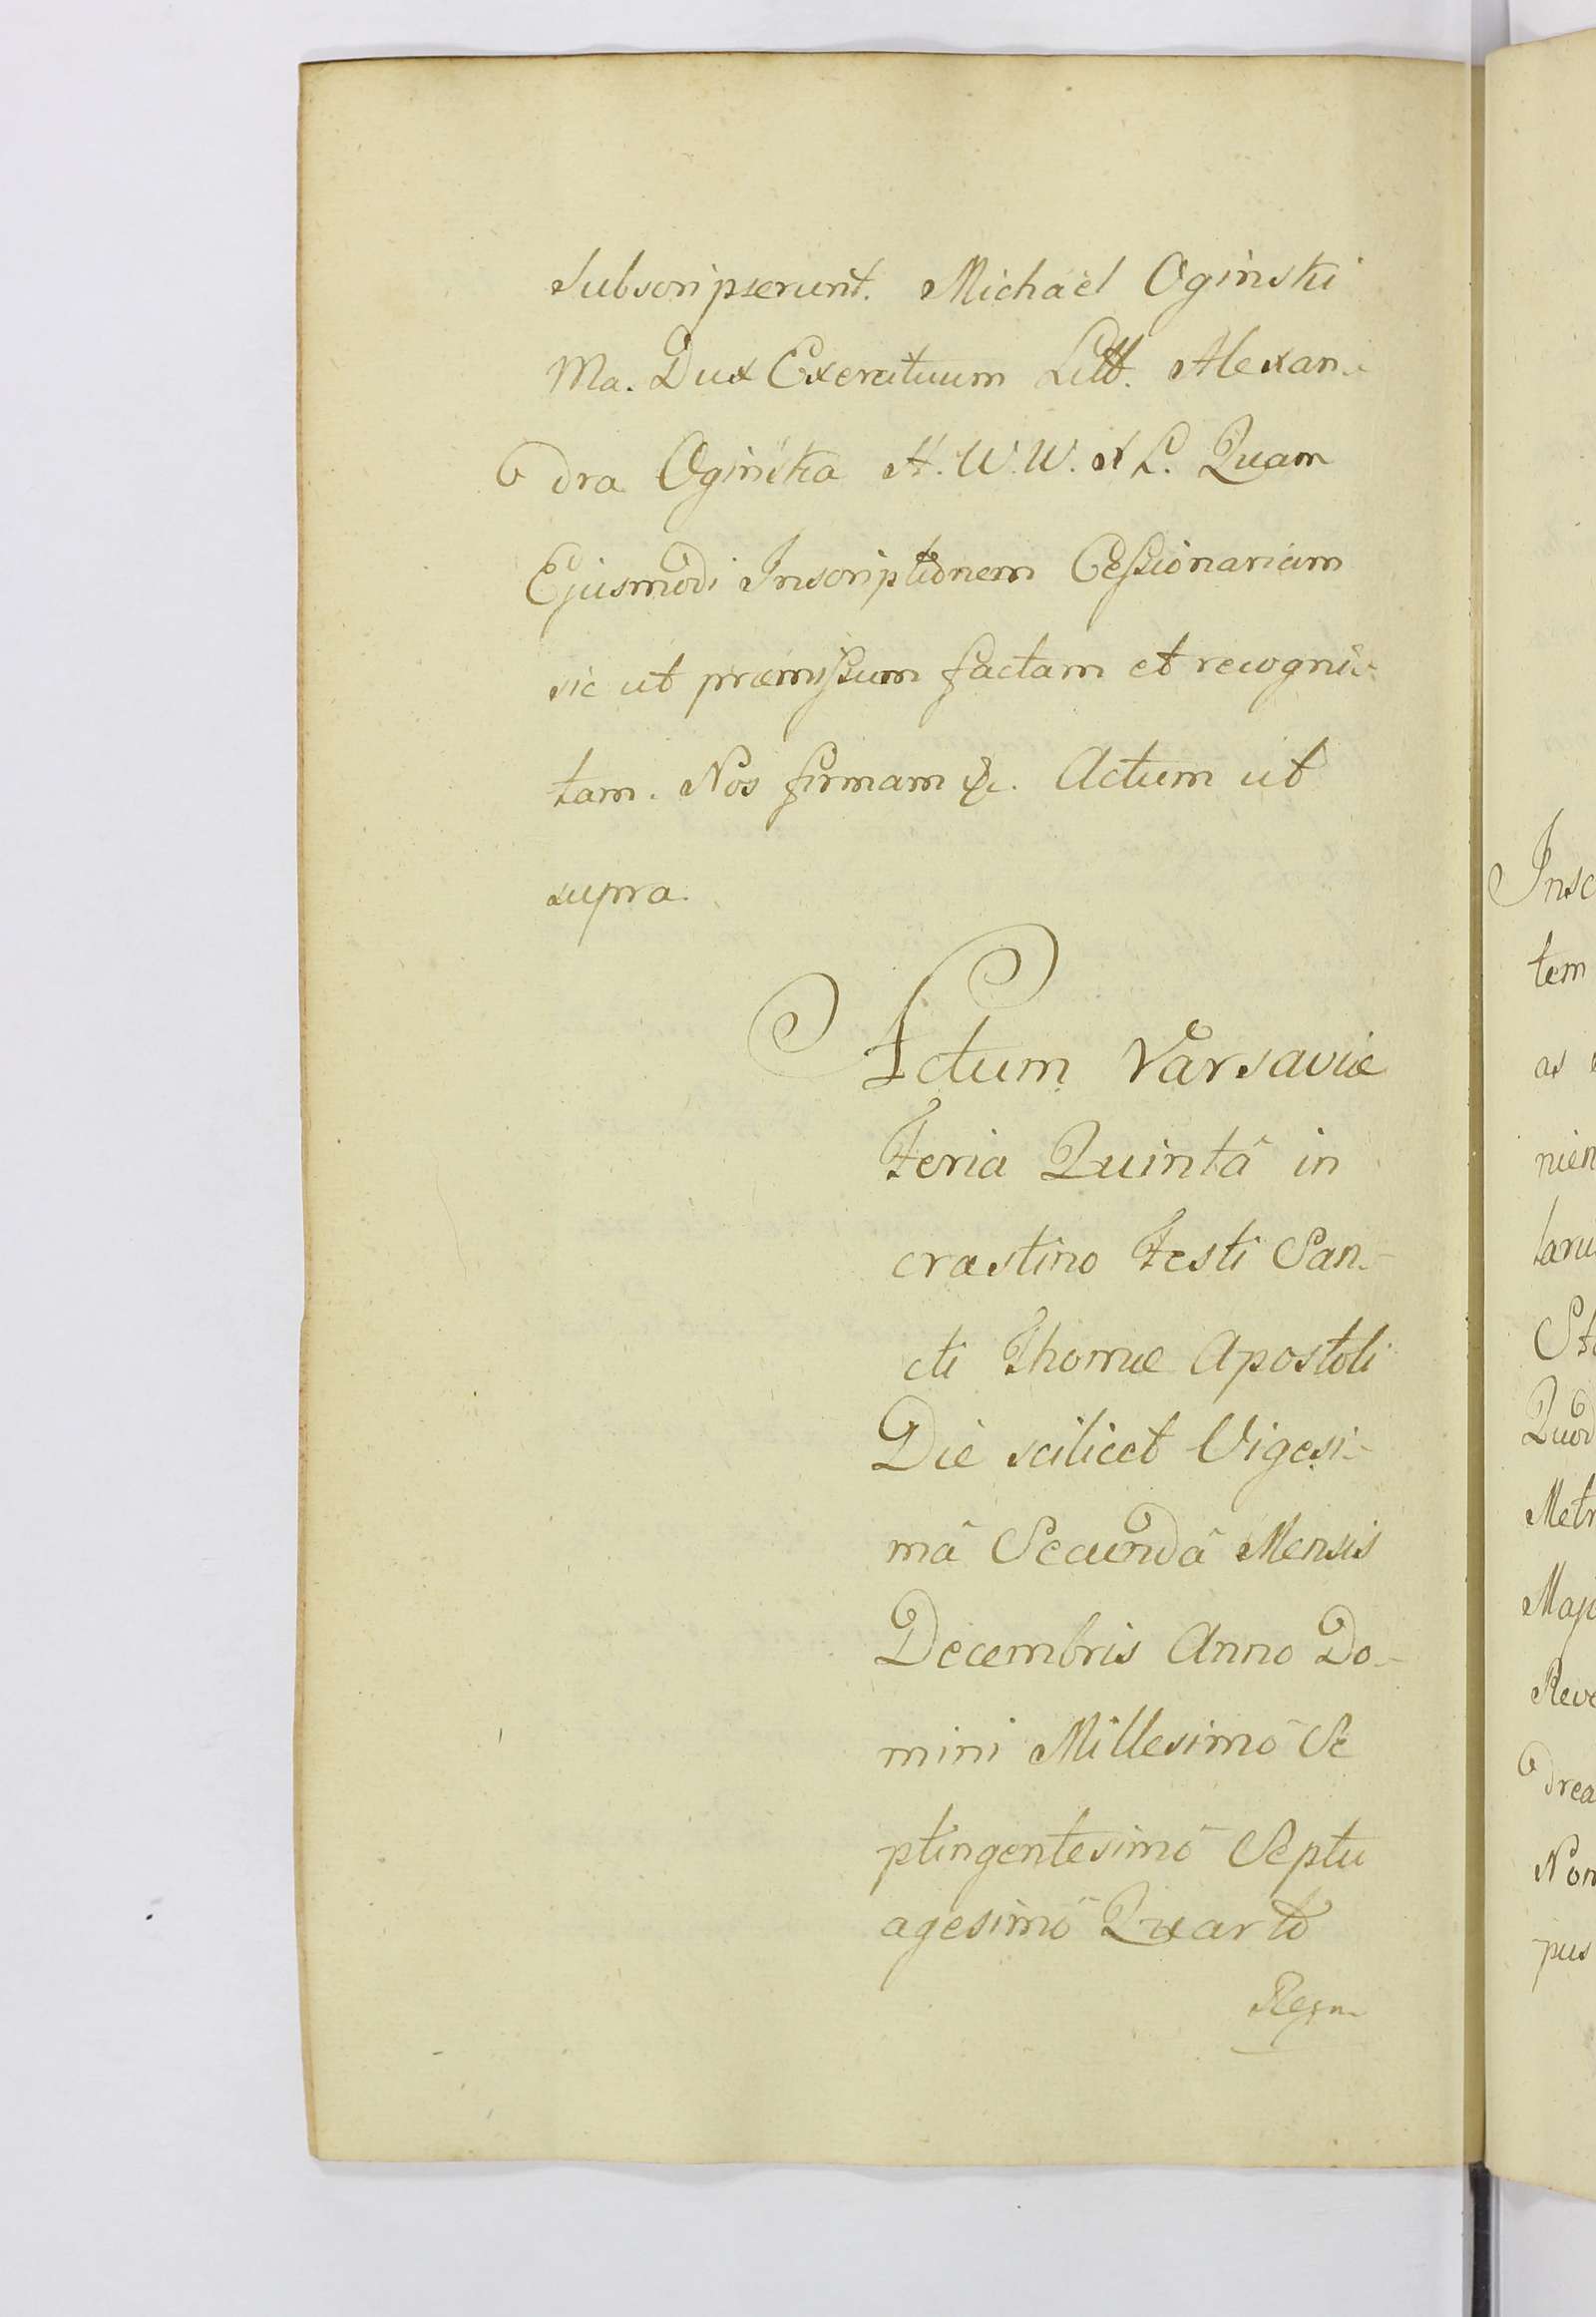 subscripserunt. Michaël Oginski
Ma. Dux Exercituum Litt. Alexan-
dra Oginska H. W. W. X L. Quam
Ejusmodi Inscriptionem Cessionariam
sic ut præmissum factam et recogni-
tam. Nos firmam &c. Actum ut
supra.
Actum Varsaviæ
Feria Quintâ in
crastino Festi San-
cti Thomæ Apostoli
Die scilicet Vigesi-
mâ Secundâ Mensis
Decembris Anno Do-
mini Millesimô Se
ptingentesimô Septu
agesimô Quartô
Regn-
Insc
tem
as
nien
laru
Sta
Quod
Metr
Majo
Reve
drea
Non
pus